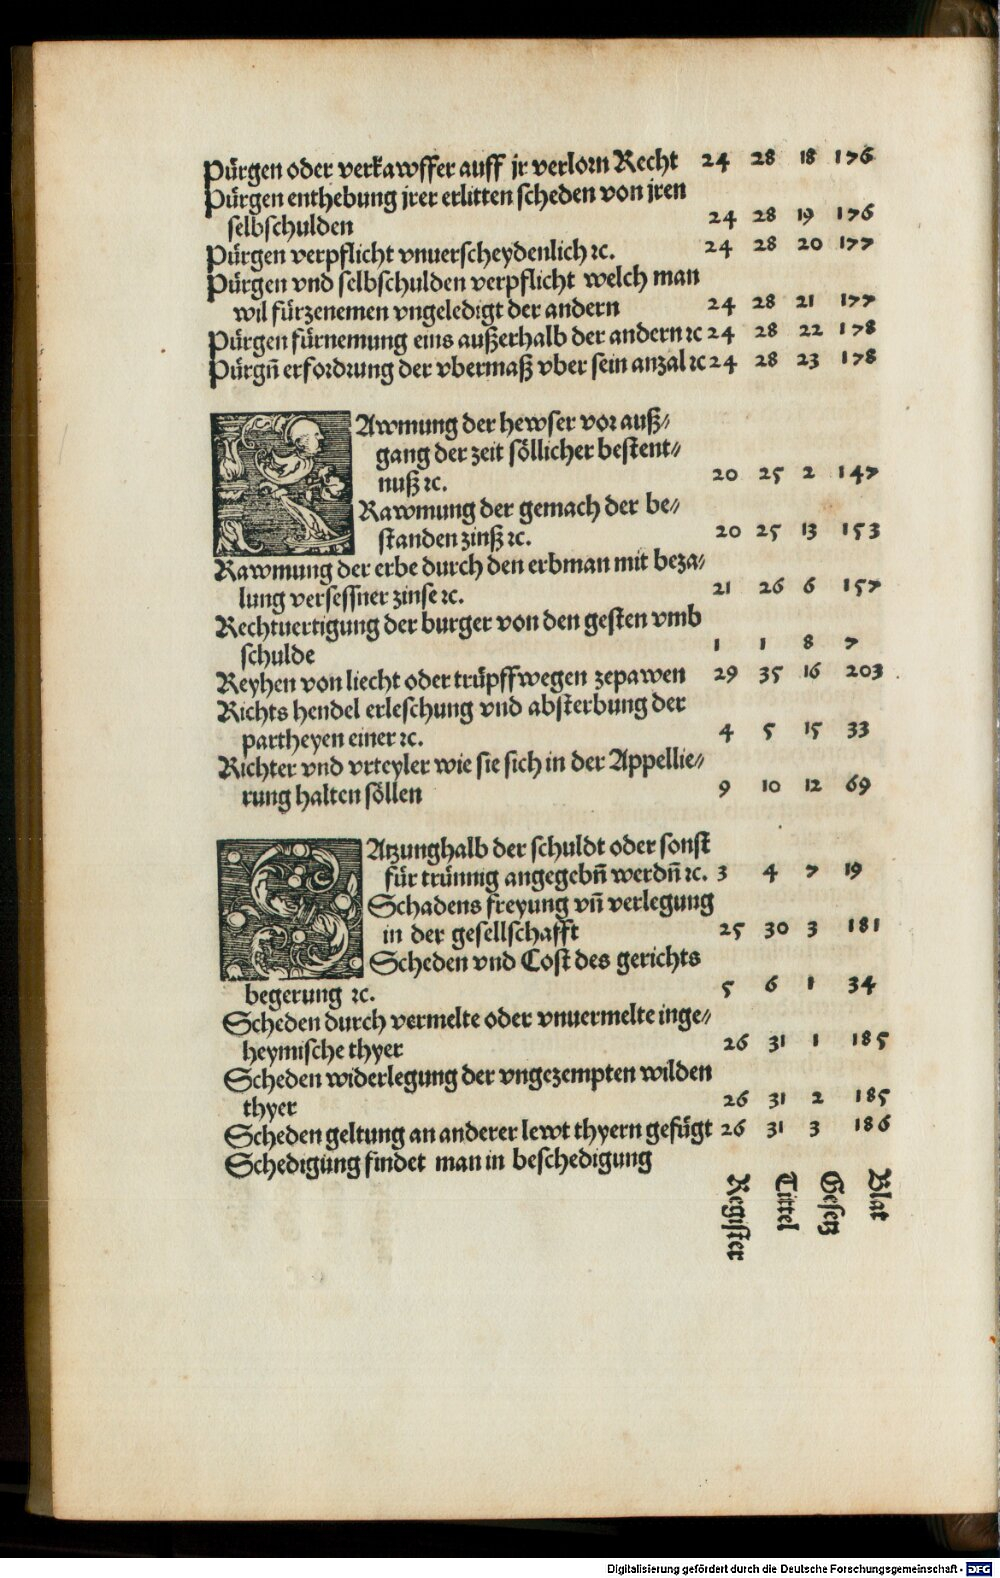 Pürgen oder verkawffer auff jr verlorn Recht 24 28 18 176
Pürgen enthebung jrer erlitten scheden von jren
selbschulden 24 28 19 176
Pürgen verpflicht vnuerscheydenlich ꝛc. 24 28 20 177
Pürgen vnd selbschulden verpflicht welch man
wil fürzenemen vngeledigt der andern 24 28 21 177
Pürgen fürnemung eins außerhalb der andern ꝛc 24 28 22 178
Pürgn̄ erfordrung der vbermaß vber sein anzal ꝛc 24 28 23 178
RAwmung der hewser vor auß⸗
gang der zeit söllicher bestent⸗
nuß ꝛc. 20 25 2 147
Rawmung der gemach der be⸗
standen zinß ꝛc. 20 25 13 153
Rawmung der erbe durch den erbman mit beza⸗
lung versessner zinse ꝛc. 21 26 6 157
Rechtuertigung der burger von den gesten vmb
schulde 1 1 8 7
Reyhen von liecht oder trüpffwegen zepawen 29 35 16 203
Richts hendel erleschung vnd absterbung der
partheyen einer ꝛc. 4 5 15 33
Richter vnd vrteyler wie sie sich in der Appellie⸗
rung halten söllen 9 10 12 69
SAtzunghalb der schuldt oder sonst
für trünnig angegebn̄ werdn̄ ꝛc. 3 4 7 19
Schadens freyung vn̄ verlegung
in der gesellschafft 25 30 3 181
Scheden vnd Cost des gerichts
begerung ꝛc. 5 6 1 34
Scheden durch vermelte oder vnuermelte inge⸗
heymische thyer 26 31 1 185
Scheden widerlegung der vngezempten wilden
thyer 26 31 2 185
Scheden geltung an anderer lewt thyern gefügt 26 31 3 186
Schedigung findet man in beschedigung
Register Tittel Gesetz Blat
Digitalisierung gefördert durch die Deutsche Forschungsgemeinschaft - DFG